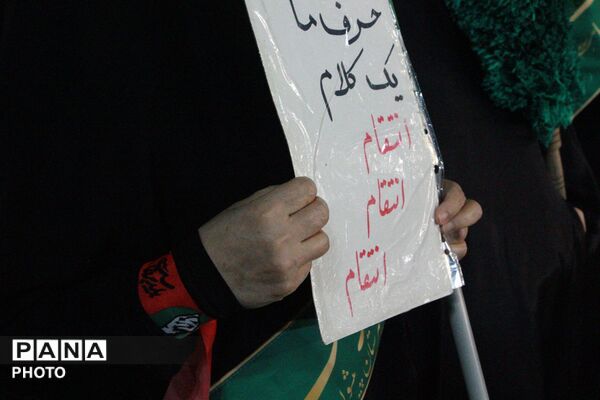 حرف ما
یک کلام
انتقام
انتقام
انتقام
PANA
PHOTO